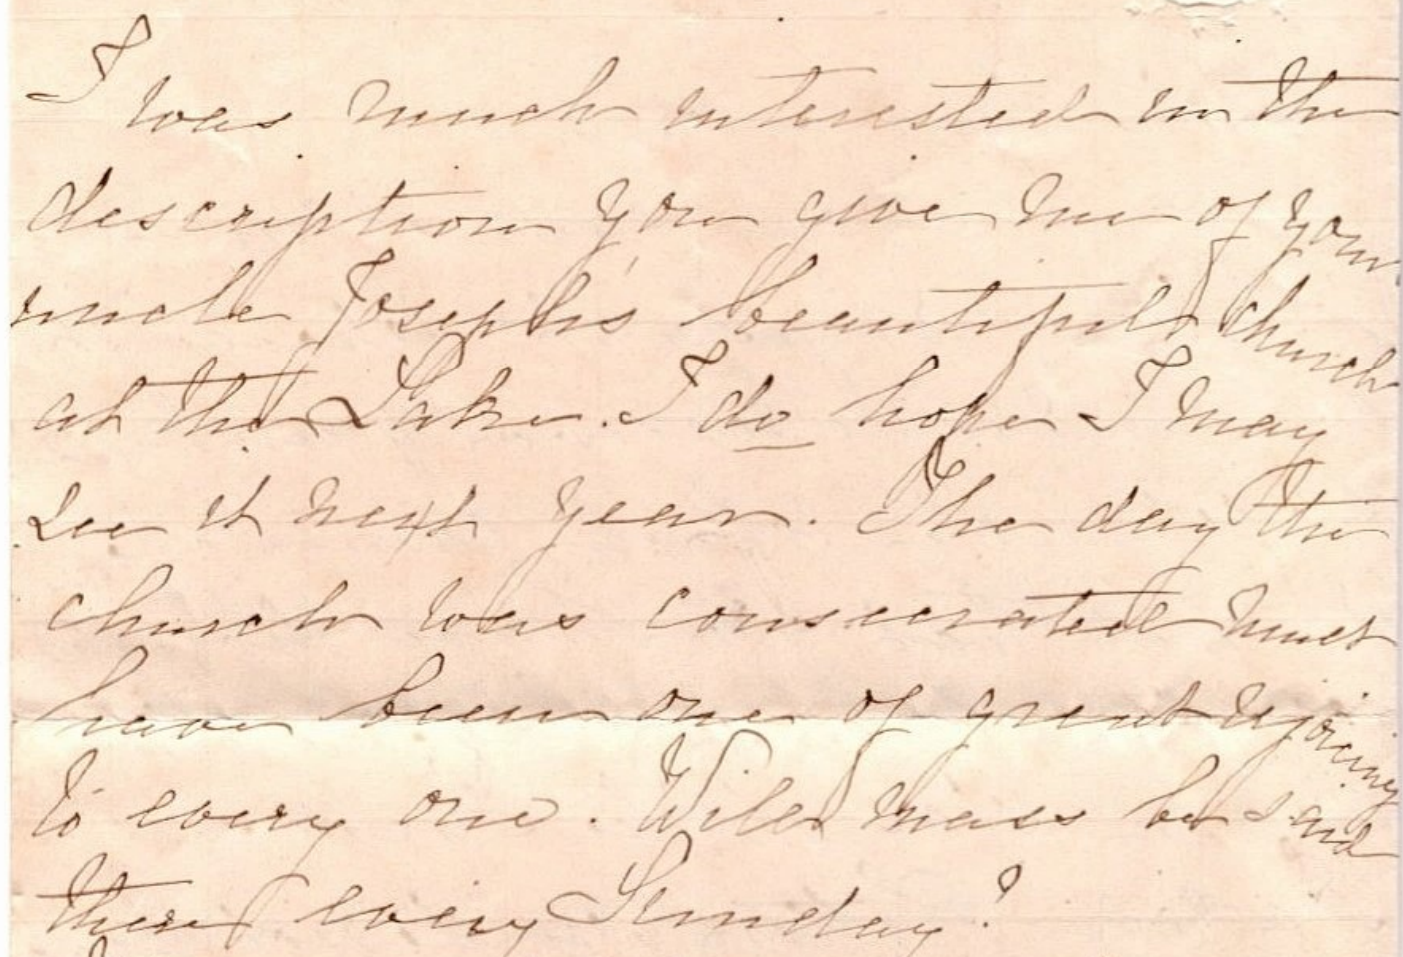 I was much interested in the
description you give me of your
uncle Joseph's beautiful church
at the Lake. I do hope I may
see it next year. The day the
church was consecrated must
have been one of great rejoicing
to every one. Will mass be said
there every Sunday?